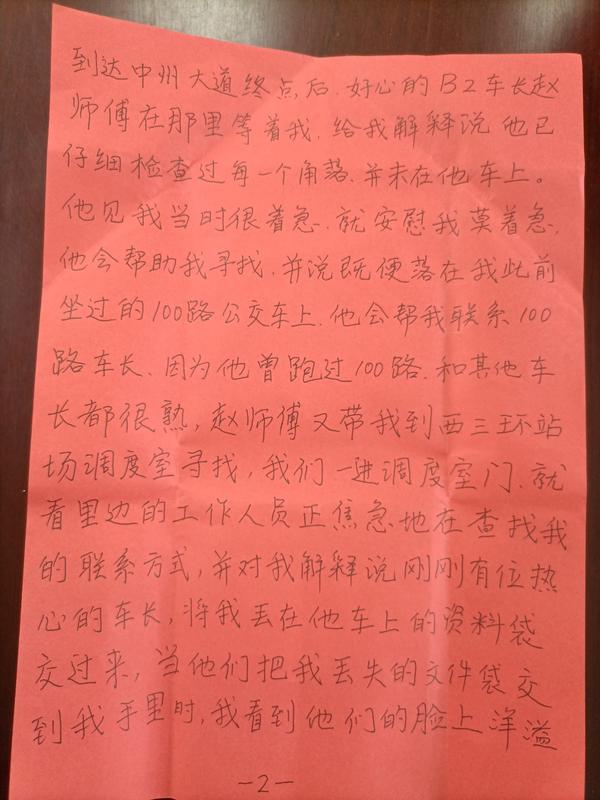 到达中州大道终点后.好心的B2车长赵
师傅在那里等着我.给我解释说他已
仔细检查过每一个角落.并未在他车上。
他见我当时很着急.就安慰我莫着急.
他会帮助我寻找.并说既便落在我此前
坐过的100路公交车上.他会帮我联系100
路车长.因为他曾跑过100路.和其他车
长都很熟,赵师傅又带我到西三环站
场调度室寻找,我们一进调度室门.就
看里边的工作人员正焦急地在查找我
的联系方式,并对我解释说刚刚有位热
心的车长,将我丢在他车上的资料袋
交过来,当他们把我丢失的文件袋交
到我手里时,我看到他们的脸上洋溢
-2-